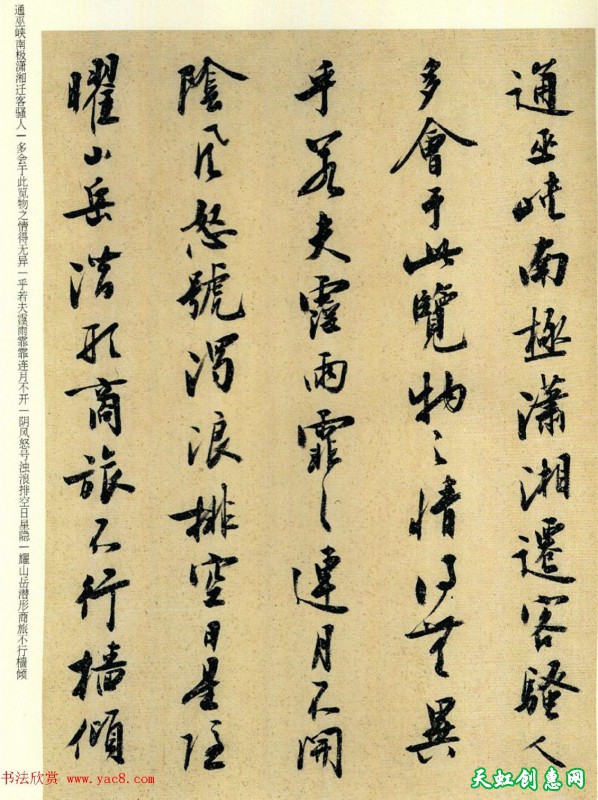 通巫峡南極瀟湘遷客騷人
多會于此覽物之情得無異
乎若夫霪雨霏々連月不開
陰風怒號濁浪排空日星隱
曜山岳潛形商旅不行檣傾
通巫峡南极潇湘迁客骚人一多会于此览物之情得无异一乎若夫霪雨霏霏连月不开一阴风怒号浊浪排空日星隐一耀山岳潜形商旅不行樯倾
书法欣赏 www.yac8.com
天虹创惠网